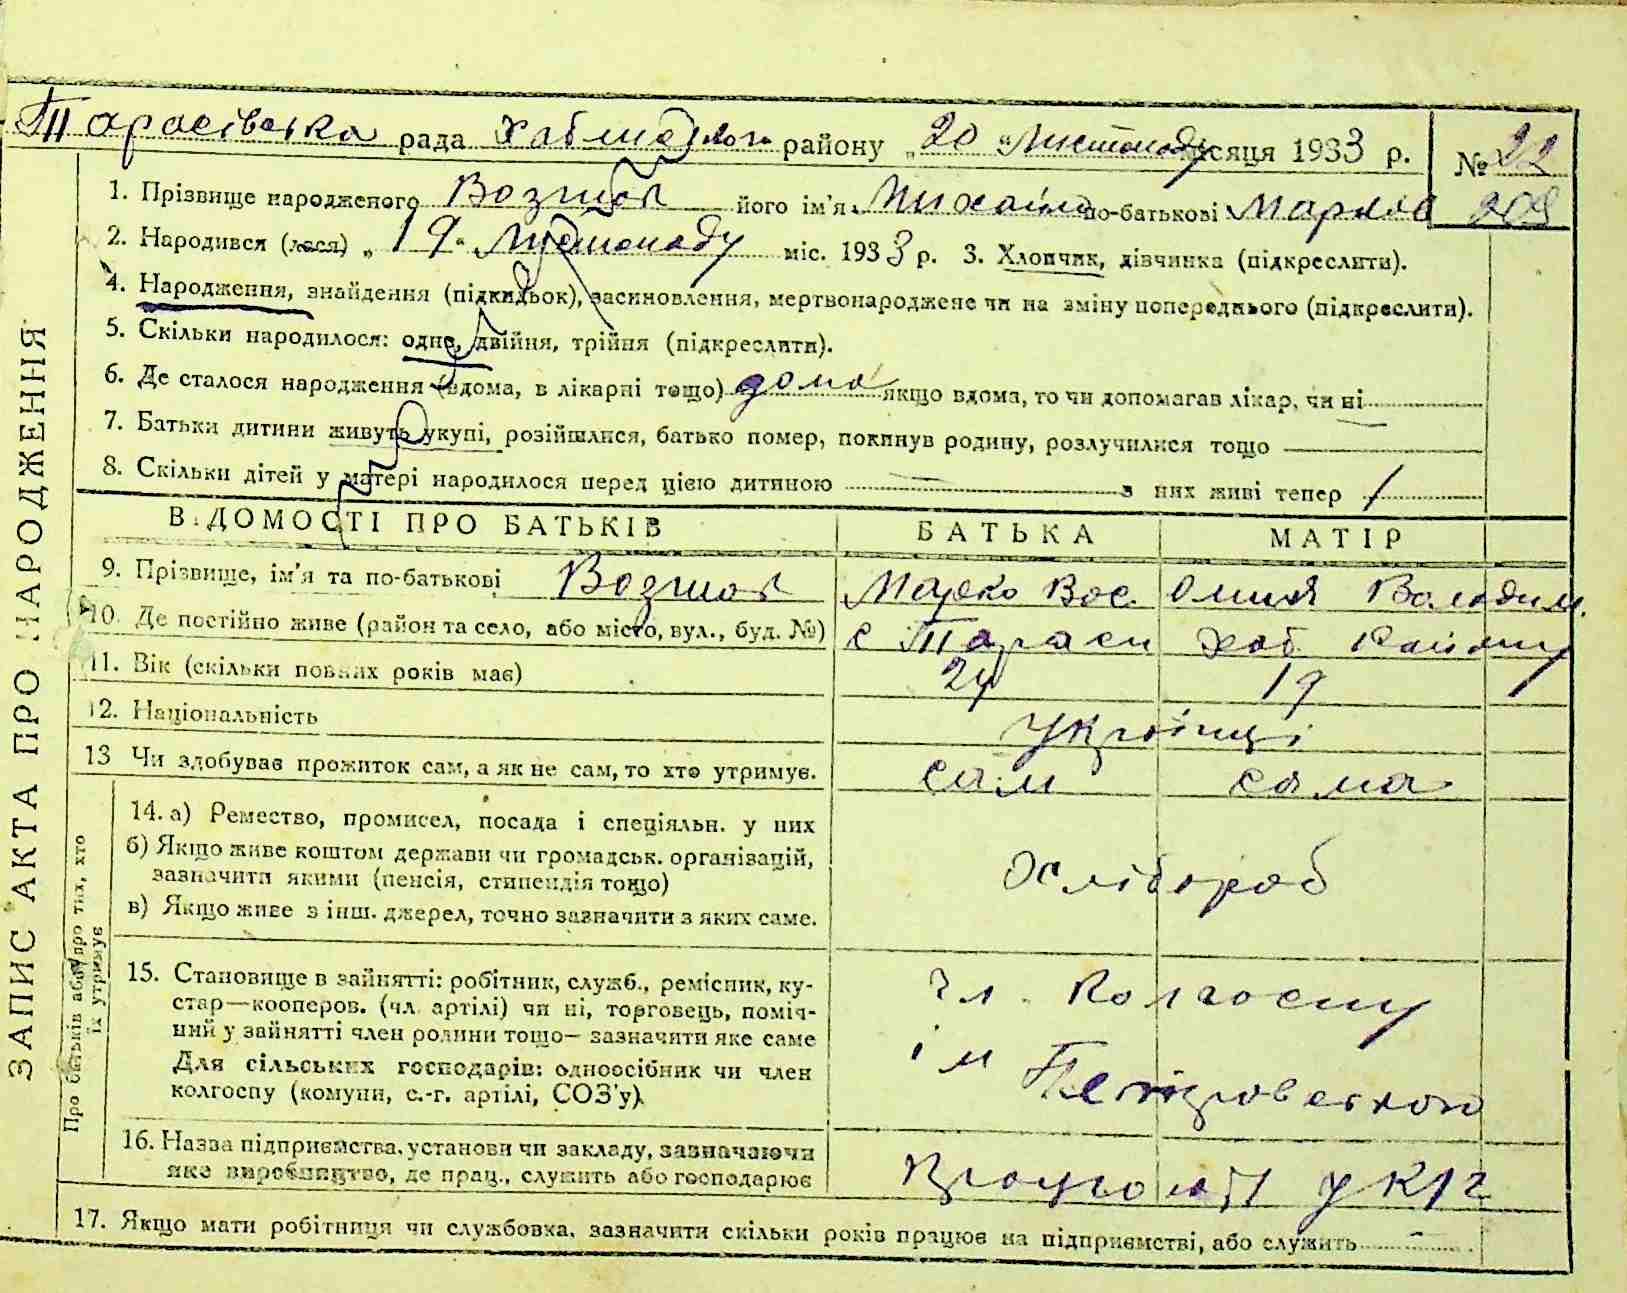 Тарасівська рада Хабенського району „20" Листопаду місяця 1933 р. № 22
1. Прізвище народженого його ім'я Михайло по-батькові Марков 209
2. Народився (лася) „19" Листопаду міс. 1933 р. 3. Хлопчик, дівчинка (підкреслити).
4. Народження, знайдення (підкидьок), засиновлення, мертвонароджене чи на зміну попереднього (підкреслити).
5. Скільки народилося: одне, двійня, трійня (підкреслити).
6. Де сталося народження (вдома, в лікарні тощо) дома якщо вдома, то чи допомагав лікар, чи ні
7. Батьки дитини живуть укупі, розійшлися, батько помер, покинув родину, розлучилися тощо
8. Скільки дітей у матері народилося перед цією дитиною — з них живі тепер /
ЗАПИС АКТА ПРО НАРОДЖЕННЯ
ВІДОМОСТІ ПРО БАТЬКІВ БАТЬКА МАТІР
9. Прізвище, ім'я та по-батькові Марко Вас. Володим.
10. Де постійно живе (район та село, або місто, вул., буд. №) с Тараси Хаб Району
11. Вік (скільки повних років має) 24 19
12. Національність Українці
13 Чи здобуває прожиток сам, а як не сам, то хто утримує. сам сама
Про батьків або про тих, хто їх утримує
14. а) Ремество, промисел, посада і спеціяльн. у них
б) Якщо живе коштом держави чи громадськ. організацій,
зазначити якими (пенсія, стипендія тощо) Хлібороб
в) Якщо живе з інш. джерел, точно зазначити з яких саме.
15. Становище в зайнятті: робітник, служб., ремісник, ку-
стар—кооперов. (чл. артілі) чи ні, торговець, поміч- чл. колгоспу
ний у зайнятті член родини тощо— зазначити яке саме ім
Для сільських господарів: одноосібник чи член Петровського
колгоспу (комуни, с.-г. артілі, СОЗ'у).
16. Назва підприємства, установи чи закладу, зазначаючи
яке виробництво, де прац., служить або господарює Працюють у кг
17. Якщо мати робітниця чи службовка, зазначити скільки років працює на підприємстві, або служить —